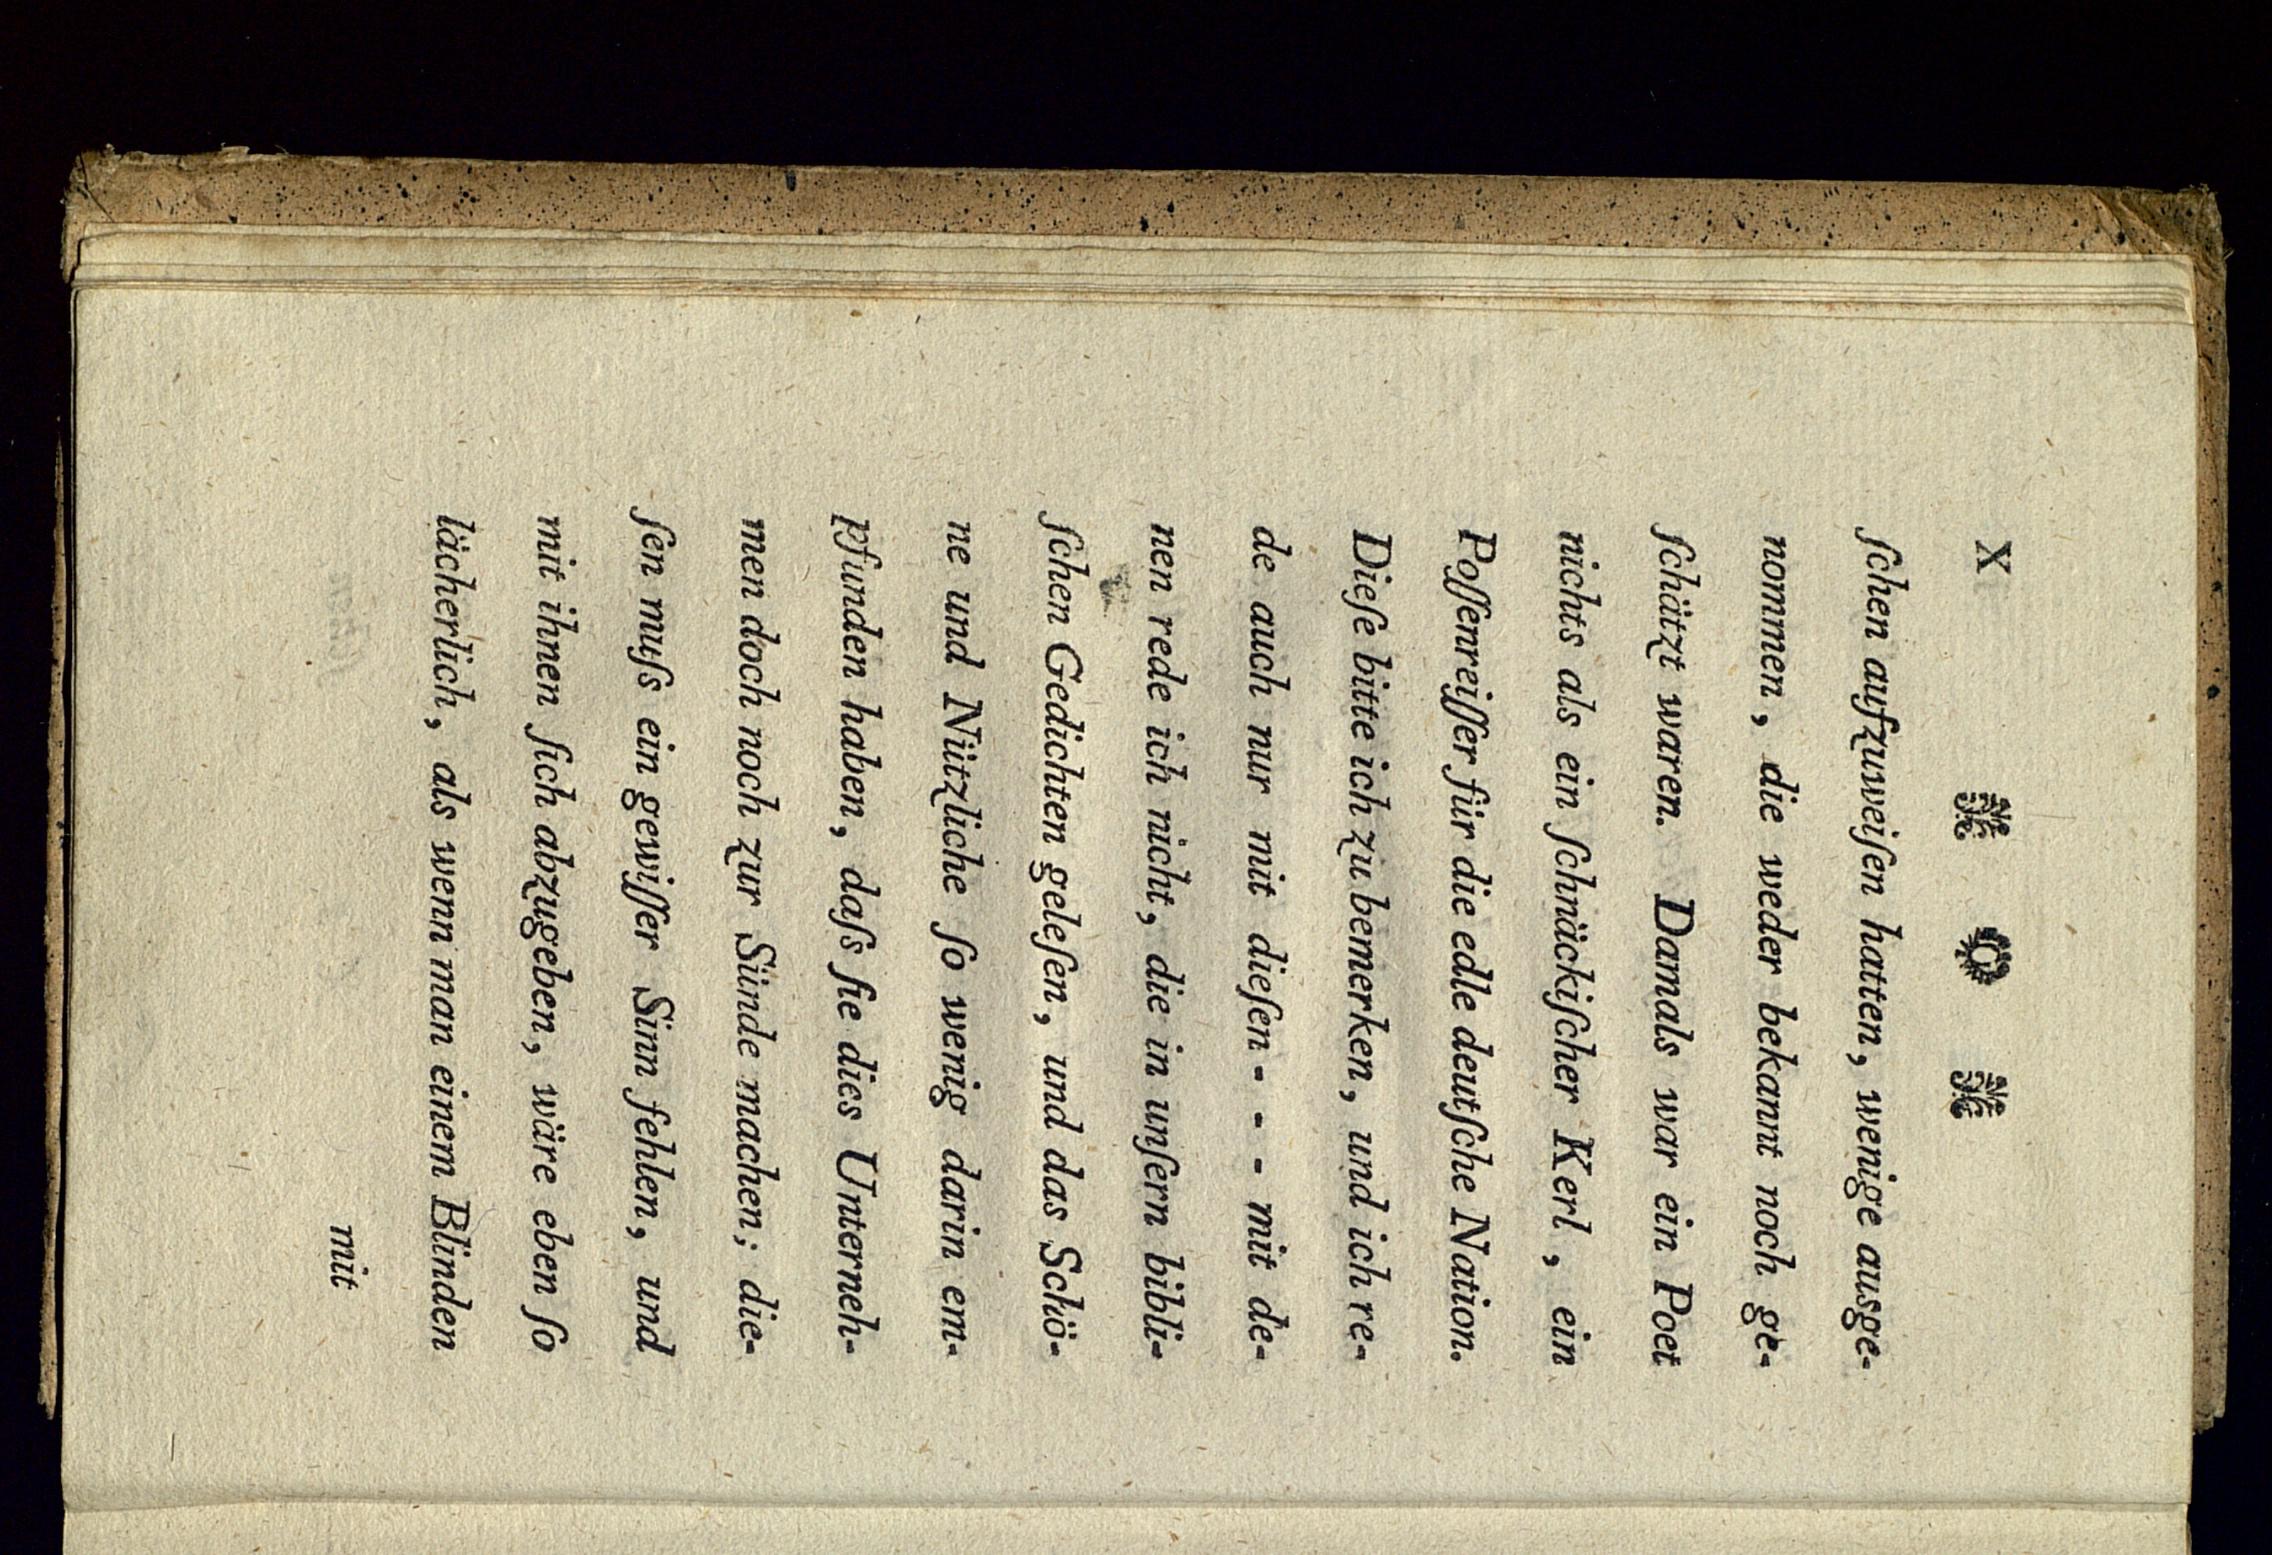 X
ſchen aufzuweiſen hatten, wenige ausge-
nommen, die weder bekannt noch ge-
ſchätzt waren. Damals war ein Poet
nichts als ein ſchnäckiſcher Kerl, ein
Poſſenreiſſer für die edle deutſche Nation.
Dieſe bitte ich zu bemerken, und ich re-
de auch nur mit dieſen - - - mit de-
nen rede ich nicht, die in unſern bibli-
ſchen Gedichten geleſen, und das Schö-
ne und Nützliche ſo wenig darin em-
pfunden haben, daſs ſie dies Unterneh-
men doch noch zur Sünde machen; die-
ſen muſs ein gewiſſer Sinn fehlen, und
mit ihnen ſich abzugeben, wäre eben ſo
lächerlich, als wenn man einem Blinden
mit